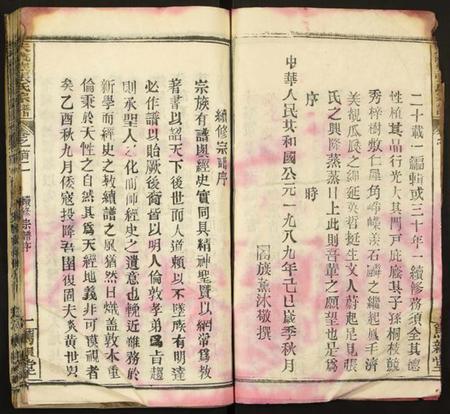 二十載一編輯或三十年一續修務須全其德
性植其品行光大其門戶庇廕其子孫桐枝競
秀梓樹數仁羅角崢嶸羨石麟之繼起鳳毛濟
美覘瓜瓞之綿延英哲挺生文人蔚起是見張
氏之興降蒸蒸日上此則吾輩之願望也是爲
序 時
中華人民共和國公元一九八九年己巳歲季秋月
闔族薰沐敬撰
續修宗譜序
宗族有譜與經史實同具精神聖賢以綱常爲教
著書以詔天下後世而人道賴以不墜族有明達
必作譜以貽厥後裔皆以明人倫敦孝弟爲吉趨
則承聖人之化而師經史之遺意也輓近雜務於
新學而經史之教續譜之風猶然日熾蓋敦木重
倫秉於天性之自然其爲天經地義非可漠視者
矣乙酉秋九月倭寇投降吾國復固夫炎黃世冑
張氏宗譜
卷首二
續修宗譜序
一
萬
堂